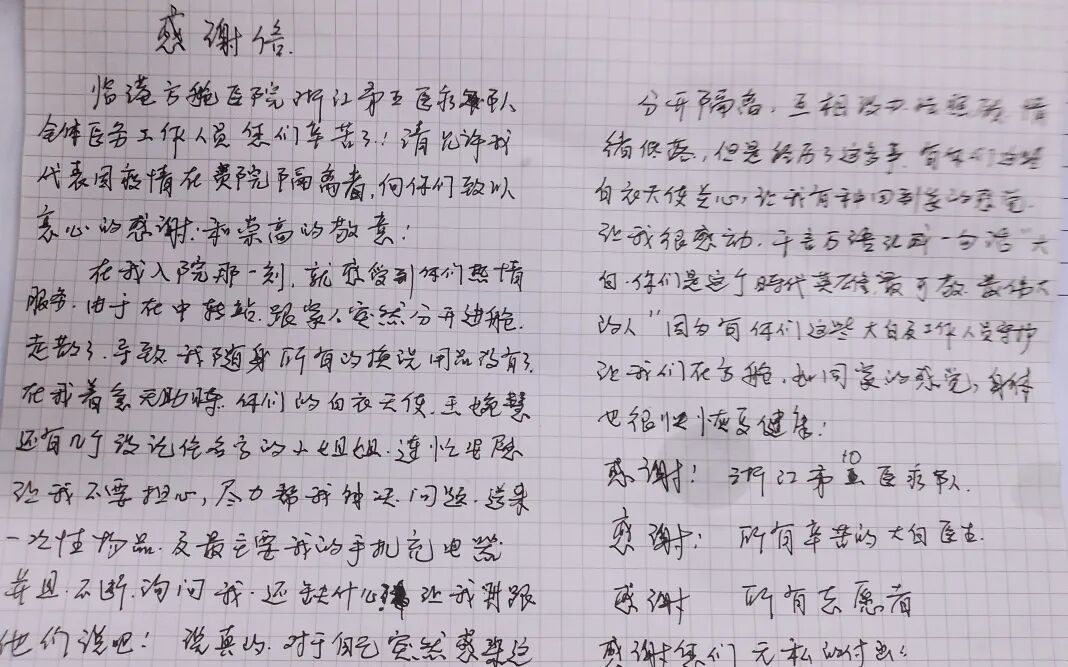 感谢信.
临港方舱医院浙江第五医疗队
全体医务工作人员您们辛苦了!请允许我
代表因疫情在贵院隔离者,向你们致以
衷心的感谢.和崇高的敬意!
在我入院那一刻,就感受到你们热情
服务.由于在中转站.跟家人突然分开进舱.
走散了.导致我随身所有的换洗用品没有了.
在我着急无助时.你们的白衣天使.王婉慧
还有几个没记住名字的小姐姐.连忙安慰
让我不要担心,尽力帮我解决问题.送来
一次性物品.及最主要我的手机充电器
并且.不断.询问我.还缺什么 让我尽跟
他们说吧!说真的.对于自己突然感染
分开隔离,互相 照顾,情
绪低落,但是经历了这多事.有你们这些
白衣天使关心,让我有种回到家的感觉.
让我很感动.千言万语汇成一句话"大
白.你们是这个时代英雄最可敬.最伟大
的人"因为有你们这些大白及工作人员守护
让我们在方舱.如同家的感觉,身体
也很快恢复健康!
感谢:浙江第五医疗队.
感谢:所有辛苦的大白医生.
感谢 所有志愿者
感谢您们无私的付出!